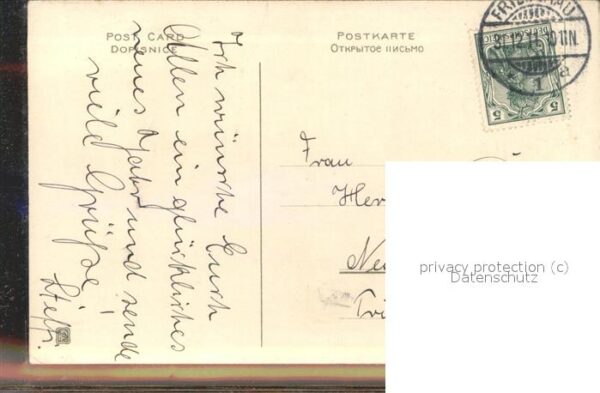 POST CARD
DOPISNICE
POSTKARTE
ОТКРЫТОЕ ПИСЬМО
31.12.11. 10-11N.
1 a
5 5
Ich wünsche Euch
Allen ein glückliches
neues Jahr und sende
viele Grüße
Steffi.
Frau
Her
Ne
privacy protection (c)
Datenschutz